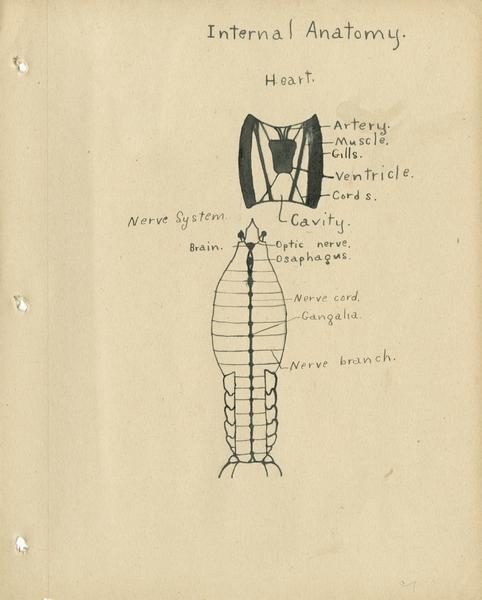 Internal Anatomy.
Heart.
Artery.
Muscle.
Gills.
Ventricle.
Cords.
Cavity.
Nerve System.
Brain.
Optic nerve.
Osaphagus.
Nerve cord.
Gangalia.
Nerve branch.